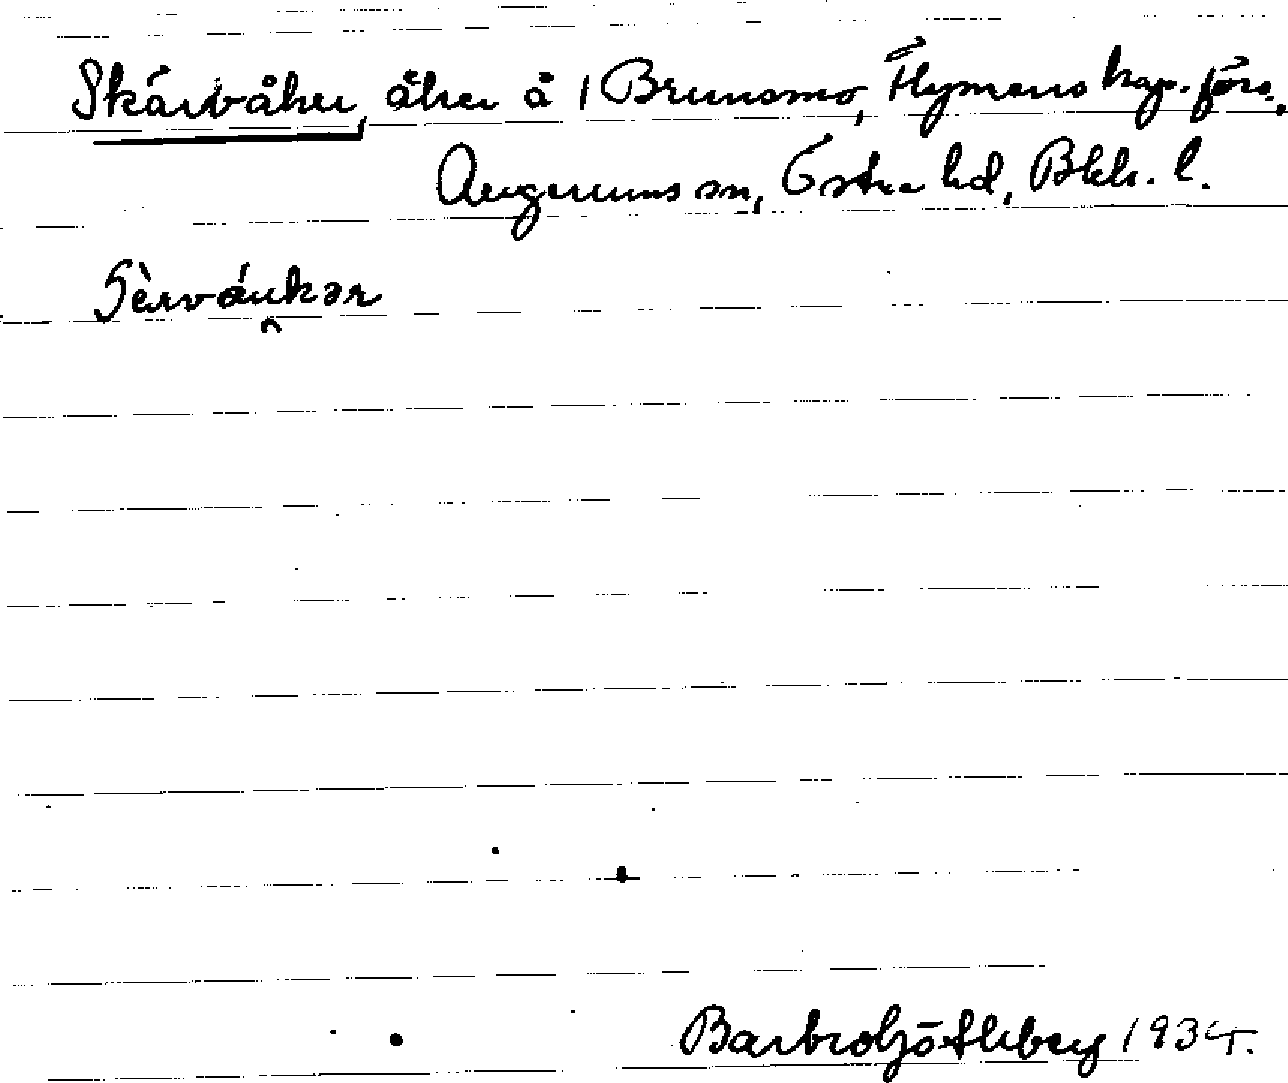 Skärvåker, åker å 1 Brunsmo, Flymens kap. förs.,
Augerums sn, Östra hd, Blek. l.
Barbro Götlberg 1934.